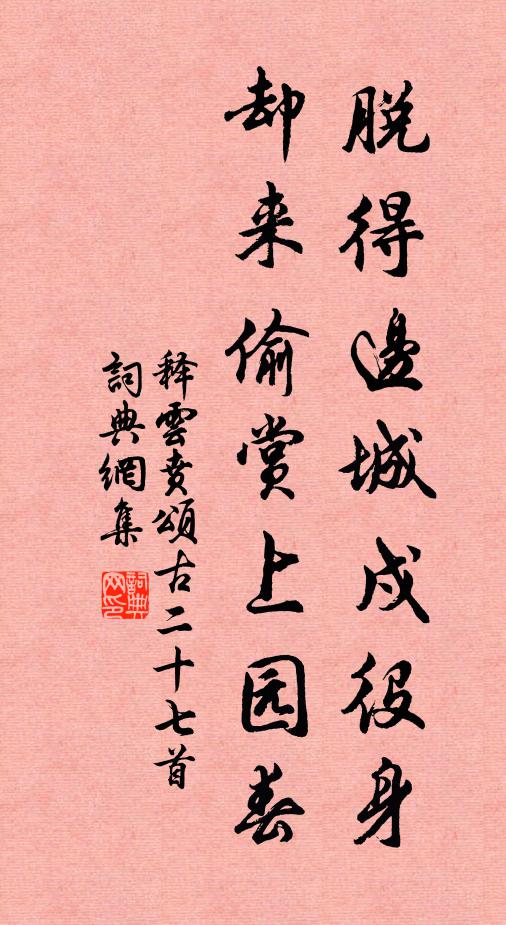 脱得邊城戍役身
却来偷赏上园春
释雲賁頌古二十七首
詞典網集
詞典网印